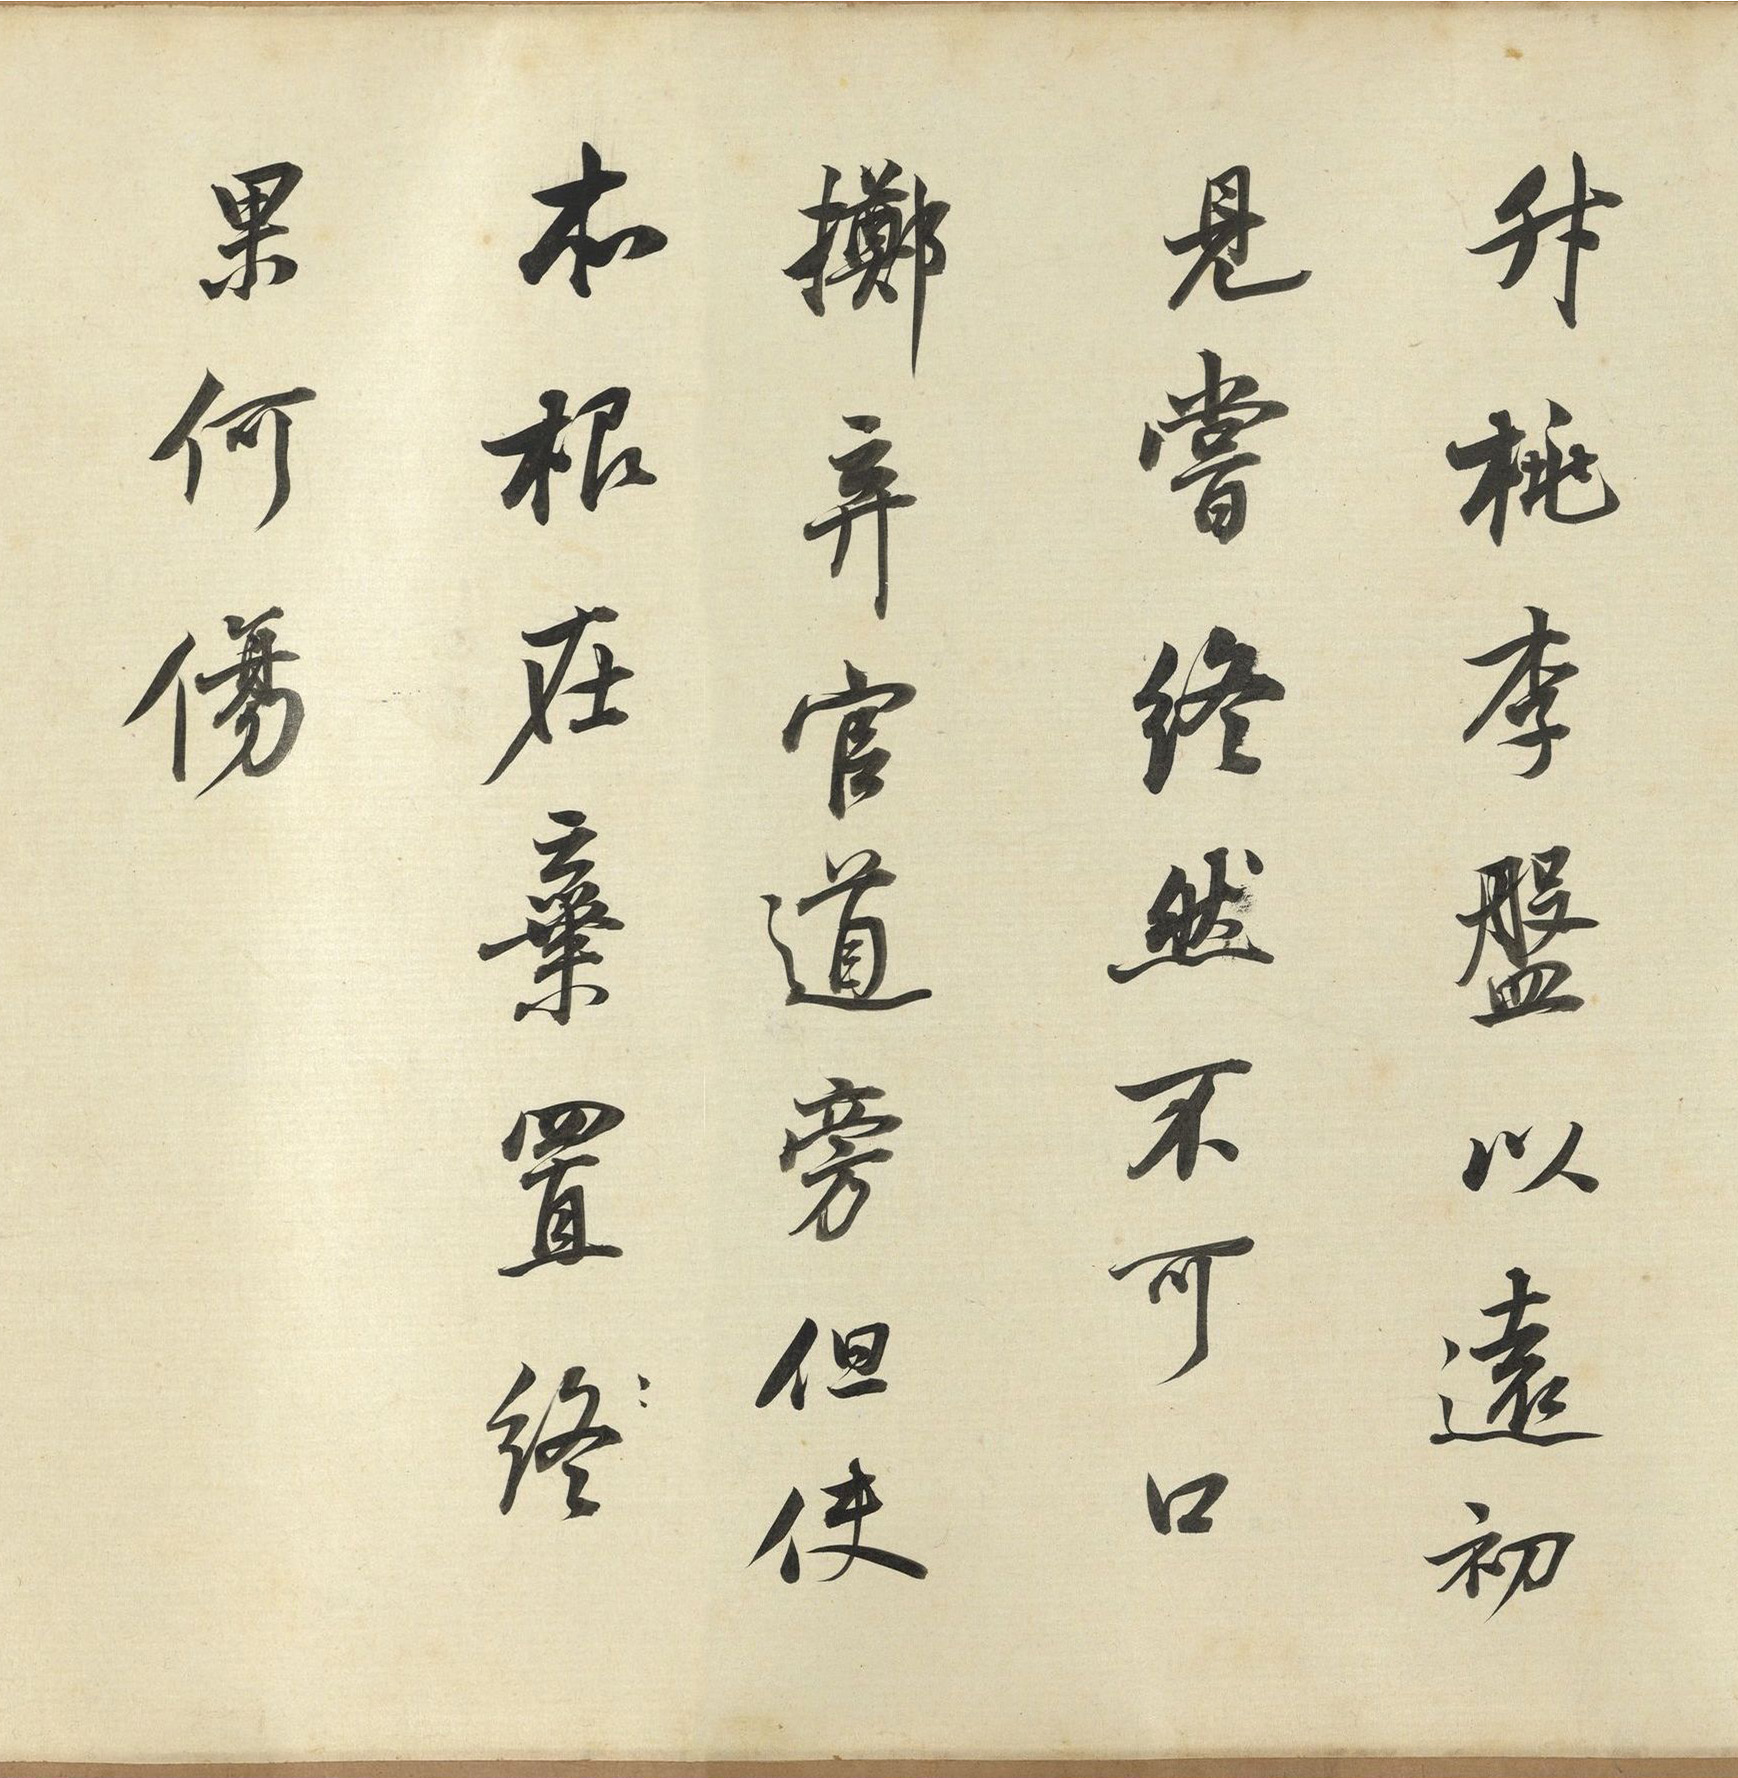 升桃李盤以遠初
見嘗終然不可口
擲弃官道旁但使
本根在棄置終
果何傷